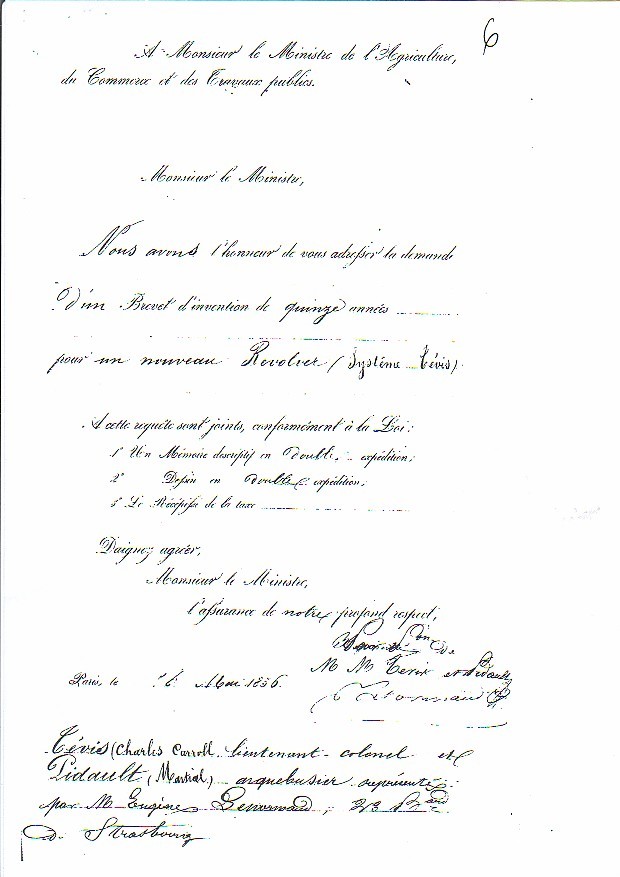 6
A Monsieur le Ministre de l'Agriculture,
du Commerce et des Travaux publics.
Monsieur le Ministre,
Nous avons l'honneur de vous adresser la demande
d'un Brevet d'invention de quinze années
pour un nouveau Revolver (Système Tévis)
A cette requête sont joints, conformément à la Loi:
1° Un Mémoire descriptif en double expédition;
2° Dessin en double expédition;
3° Le Récépissé de la taxe
Daignez agréer,
Monsieur le Ministre,
l'assurance de notre profond respect,
Par on de
M M Tevis et Pidault
Paris, le 16 Mai 1856.
Tévis (Charles Carroll lieutenant-colonel et
Pidault, (Martial) arquebusier représentés
par M Eugène Lenormand, 23 Bard
de Strasbourg